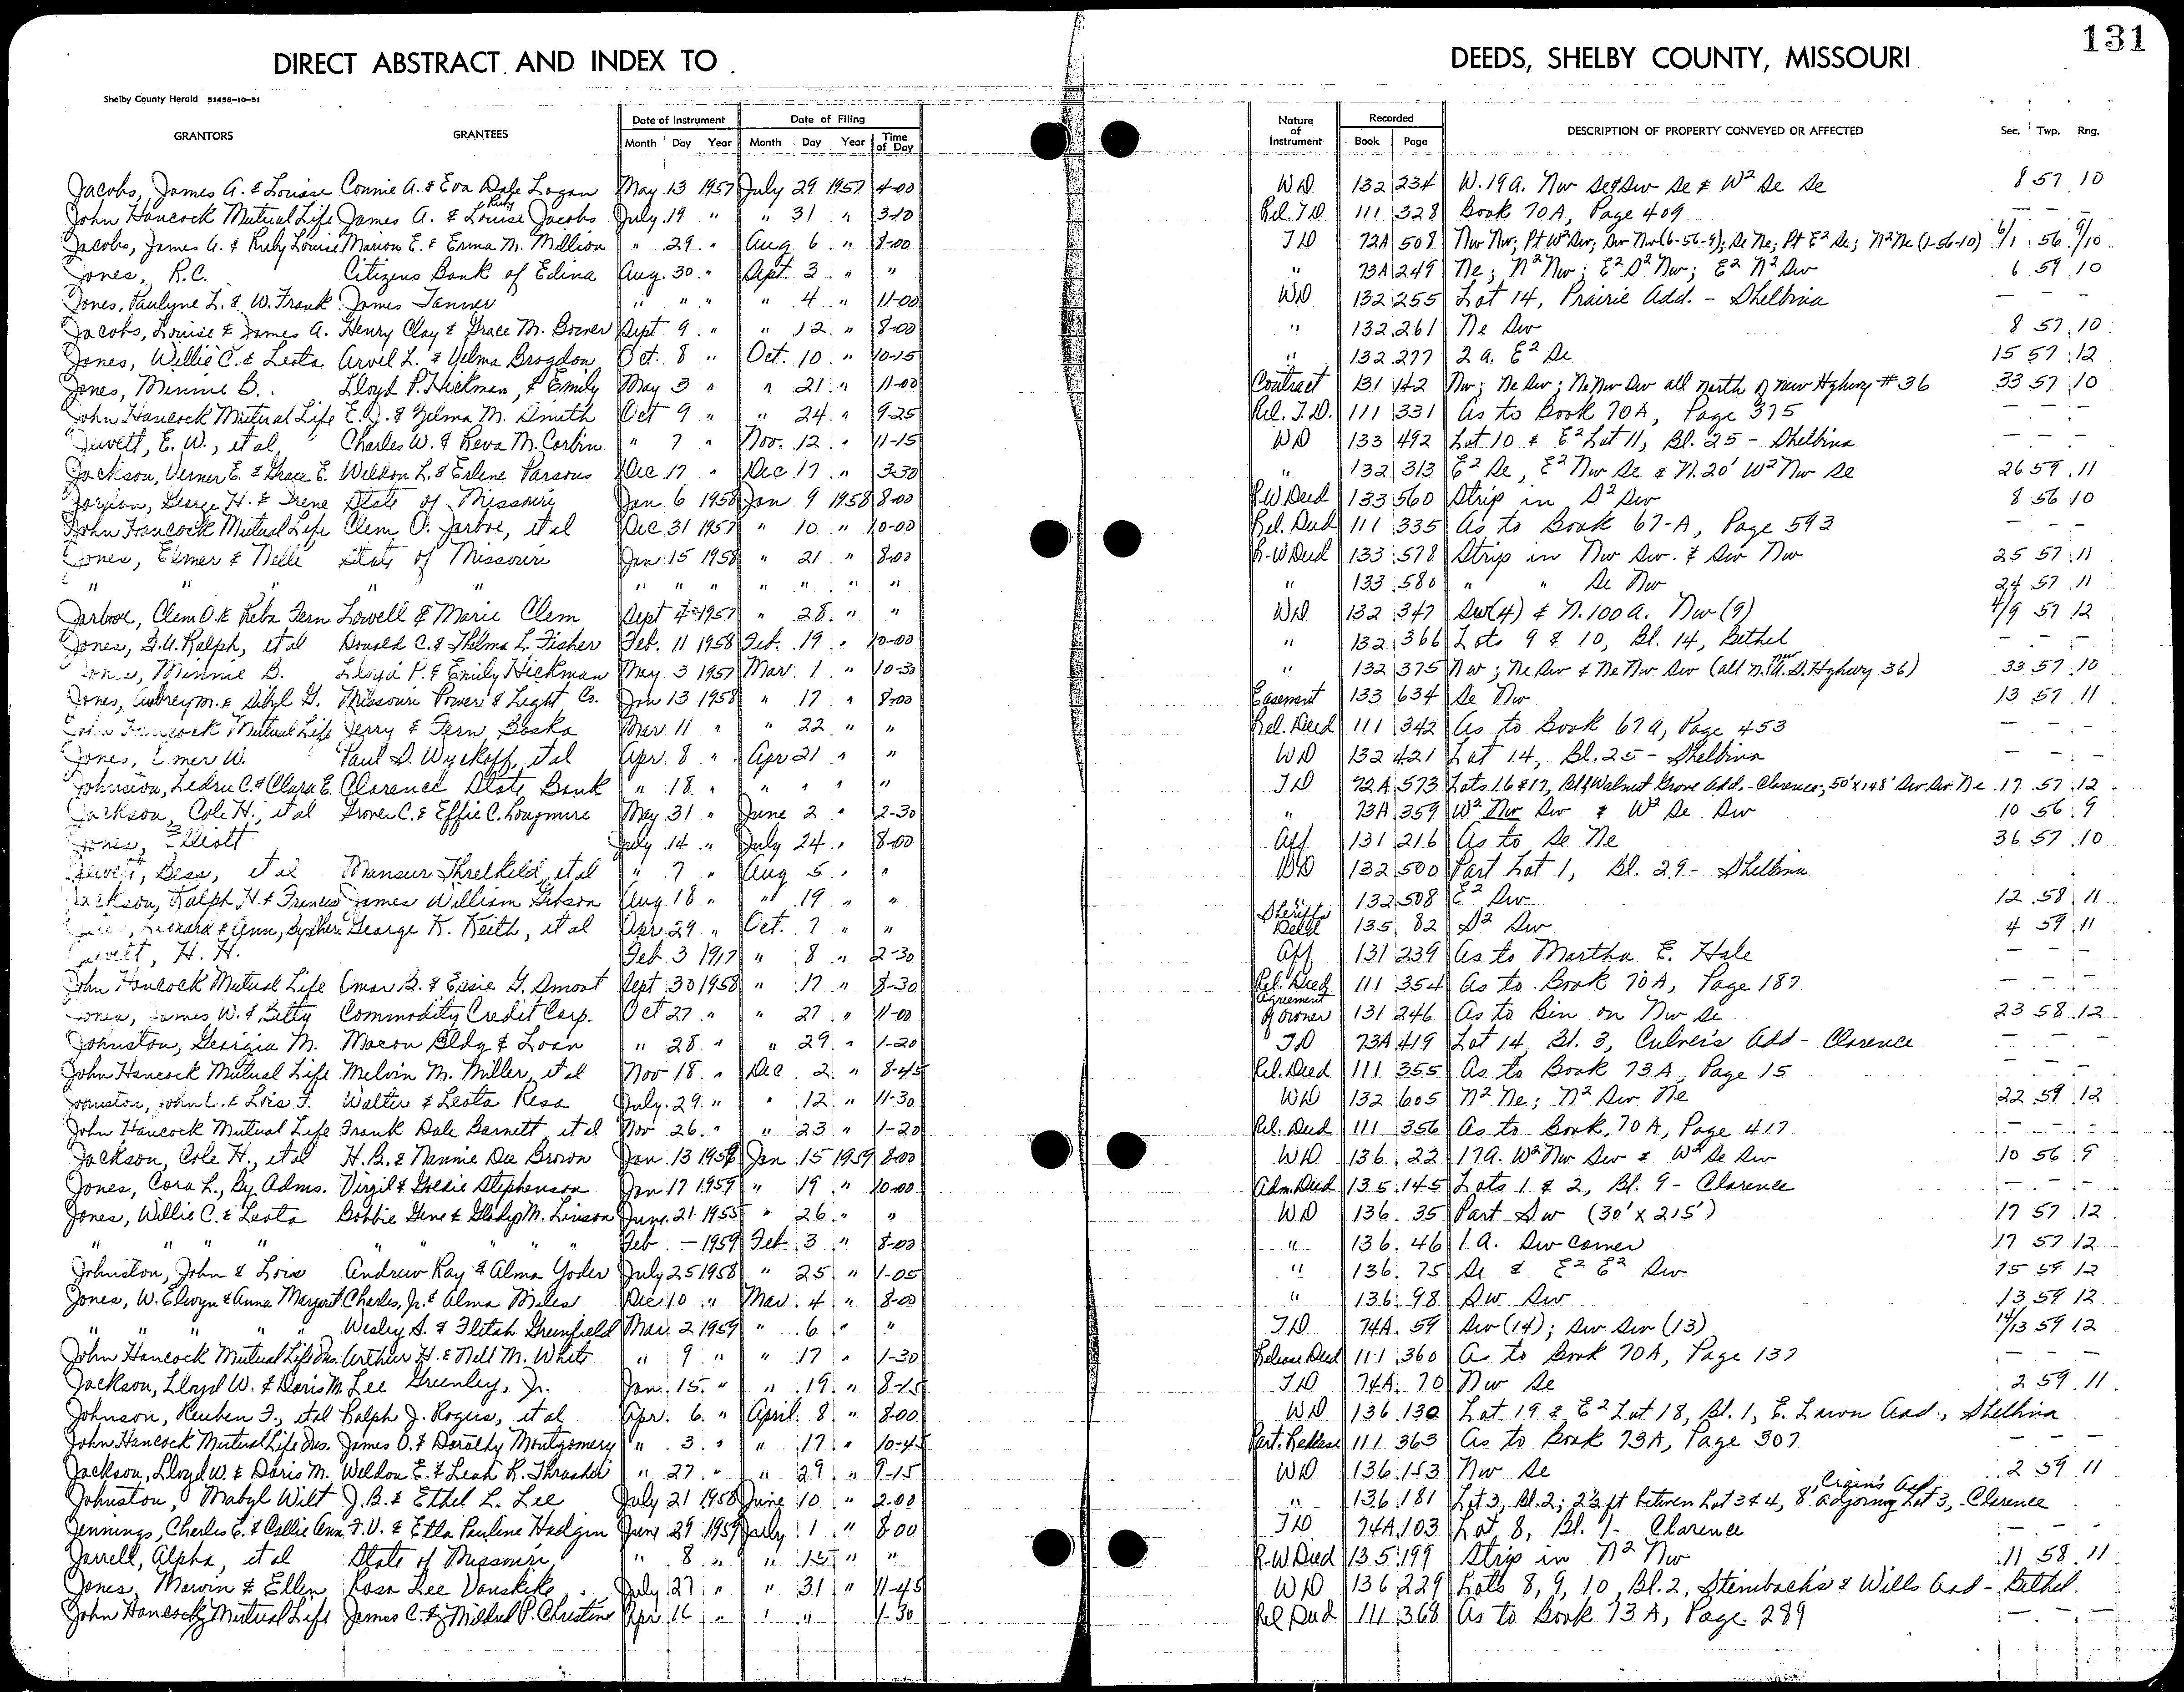 131
DIRECT ABSTRACT AND INDEX TO DEEDS, SHELBY COUNTY, MISSOURI
Shelby County Herald 51458-10-51
GRANTORS GRANTEES Date of Instrument Date of Filing Nature of Instrument Recorded DESCRIPTION OF PROPERTY CONVEYED OR AFFECTED Sec. Twp. Rng.
Month Day Year Month Day Year Time of Day Book Page
Jacobs, James A. & Louise Connie A. & Eva Dale Logan May 13 1957 July 29 1957 4-00 WD 132 234 W. 19 A. Nw Se & Sw Se & W² Se Se 8 57 10
John Hancock Mutual Life James A. & Louise Ruby Jacobs July 19 " " 31 " 3-10 Rel. T.D. 111 328 Book 70A, Page 409 — — —
Jacobs, James A. & Ruby Louise Marion E. & Erma M. Million " 29 " Aug 6 " 8-00 TD 72A 508 Nw Nw; Pt W² Sw; Sw Nw (6-56-9); Se Ne; Pt E² Se; N² Ne (1-56-10) 6/1 56 9/10
Jones, R.C. Citizens Bank of Edina Aug. 30 " Sept. 3 " " " 73A 249 Ne; N² Nw; E² S² Nw; E² N² Sw 6 59 10
Jones, Paulyne L. & W. Frank James Tanner " " " " 4 " 11-00 WD 132 255 Lot 14, Prairie Add. - Shelbina — — —
Jacobs, Louise & James A. Henry Clay & Grace M. Bower Sept 9 " " 12 " 8-00 " 132 261 Ne Sw 8 57 10
Jones, Willie C. & Leota Arvel L. & Velma Brogdon Oct. 8 " Oct. 10 " 10-15 " 132 277 2 A. E² Se 15 57 12
Jones, Minnie B. Lloyd P. Hickman, & Emily May 3 " " 21 " 11-00 Contract 131 142 Nw; Ne Sw; Ne Nw Sw all north of new Highway #36 33 57 10
John Hancock Mutual Life E. J. & Zelma M. Smith Oct 9 " " 24 " 9-25 Rel. T.D. 111 331 As to Book 70A, Page 375 — — —
Jewett, E. W., et al Charles W. & Reva M. Corbin " 7 " Nov. 12 " 11-15 WD 133 492 Lot 10 & E² Lot 11, Bl. 25 - Shelbina — — —
Jackson, Verner E. & Grace E. Weldon L. & Erlene Parsons Dec 17 " Dec 17 " 3-30 " 132 313 E² Se, E² Nw Se & N. 20' W² Nw Se 26 59 11
Jordan, George H. & Irene State of Missouri Jan 6 1958 Jan 9 1958 8-00 R-W Deed 133 560 Strip in S² Sw 8 56 10
John Hancock Mutual Life Clem O. Jarboe, et al Dec 31 1957 " 10 " 10-00 Rel. Deed 111 335 As to Book 67-A, Page 593 — — —
Jones, Elmer & Nelle State of Missouri Jan 15 1958 " 21 " 8-00 R-W Deed 133 578 Strip in Nw Sw. & Sw Nw 25 57 11
" " " " " " " " " " " " 133 580 " " Se Nw 24 57 11
Jarboe, Clem O. & Reba Fern Lowell & Marie Clem Sept 4 1957 " 28 " " WD 132 347 Sw (4) & N. 100 A. Nw (9) 4/9 57 12
Jones, Ralph, et al Donald C. & Thelma L. Fisher Feb. 11 1958 Feb. 19 " 10-00 " 132 366 Lots 9 & 10, Bl. 14, Bethel — — —
Jones, Minnie B. Lloyd P. & Emily Hickman May 3 1957 Mar. 1 " 10-30 " 132 375 Nw; Ne Sw & Ne Nw Sw (all N. new U.S. Highway 36) 33 57 10
Jones, Aubrey M. & Sibyl G. Missouri Power & Light Co. Jan 13 1958 " 17 " 8-00 Easement 133 634 Se Nw 13 57 11
John Hancock Mutual Life Jerry & Fern Baska Mar 11 " " 22 " " Rel. Deed 111 342 As to Book 67A, Page 453 — — —
Jones, Elmer W. Paul D. Wyckoff, et al Apr. 8 " Apr 21 " " WD 132 421 Lot 14, Bl. 25 - Shelbina — — —
Johnston, Ledru C. & Clara E. Clarence State Bank " 18 " " " " " TD 72A 573 Lots 16 & 17, Bl 4 Walnut Grove Add. - Clarence; 50' x 148' Sw Sw Ne 17 57 12
Jackson, Cole H., et al Grover C. & Effie C. Longmire May 31 " June 2 " 2-30 " 73A 359 W² Nw Sw & W² Se Sw 10 56 9
Jones, Elliott July 14 " July 24 " 8-00 Aff 131 216 As to Se Ne 36 57 10
Jewett, Bess, et al Mansur Threlkeld, et al " 7 " Aug 5 " " WD 132 500 Part Lot 1, Bl. 29 - Shelbina
Jackson, Ralph H. & Frances James William Gibson Aug. 18 " " 19 " " " 132 508 E² Sw 12 58 11
Richard & Ann, By Sher. George K. Keith, et al Apr 29 " Oct. 7 " " Sheriff's Deed 135 82 S² Sw 4 59 11
Jewett, H. H. Feb. 3 1917 " 8 " 2-30 Aff 131 239 As to Martha E. Hale — — —
John Hancock Mutual Life Omar B. & Essie G. Smoot Sept 30 1958 " 17 " 8-30 Rel. Deed 111 354 As to Book 70A, Page 187 — — —
Jones, James W. & Betty Commodity Credit Corp. Oct 27 " " 27 " 11-00 Agreement of owner 131 246 As to Bin on Nw Se 23 58 12
Johnston, Georgia M. Macon Bldg & Loan " 28 " " 29 " 1-20 TD 73A 419 Lot 14, Bl. 3, Culver's Add - Clarence — — —
John Hancock Mutual Life Melvin M. Miller, et al Nov 18 " Dec 2 " 8-45 Rel. Deed 111 355 As to Book 73A, Page 15 — — —
Johnston, John L. & Lois F. Walter & Leota Resa July 29 " " 12 " 11-30 WD 132 605 N² Ne; N² Sw Ne 22 59 12
John Hancock Mutual Life Frank Dale Barnett, et al Nov 26 " " 23 " 1-20 Rel. Deed 111 356 As to Book 70A, Page 417 — — —
Jackson, Cole H., et al H. B. & Nannie Dee Brown Jan. 13 1958 Jan. 15 1959 8-00 WD 136 22 17 A. W² Nw Sw & W² Se Sw 10 56 9
Jones, Cora L., By Adms. Virgil & Goldie Stephenson Jan 17 1959 " 19 " 10-00 Adm. Deed 135 145 Lots 1 & 2, Bl. 9 - Clarence — — —
Jones, Willie C. & Leota Bobbie Gene & Gladys M. Linson June 21 1955 " 26 " " WD 136 35 Part Sw (30' x 215') 17 57 12
" " " " " " " " Feb — 1959 Feb. 3 " 8-00 " 136 46 1 A. Sw Corner 17 57 12
Johnston, John & Lois Andrew Ray & Alma Yoder July 25 1958 " 25 " 1-05 " 136 75 Se & E² E² Sw 15 59 12
Jones, W. Elwyn & Anna Margaret Charles, Jr. & Alma Miles Dec 10 " Mar. 4 " 8-00 " 136 98 Sw Sw 13 59 12
" " " " Wesley S. & Fletah Greenfield Mar. 2 1959 " 6 " " TD 74A 59 Sw (14); Sw Sw (13) 14/13 59 12
John Hancock Mutual Life Ins. Arthur H. & Nell M. White " 9 " " 17 " 1-30 Release Deed 111 360 As to Book 70A, Page 137 — — —
Jackson, Lloyd W. & Doris M. Lee Greenley, Jr. Jan. 15 " " 19 " 8-15 TD 74A 70 Nw Se 2 59 11
Johnson, Reuben F., et al Ralph J. Rogers, et al Apr. 6 " April 8 " 8-00 WD 136 130 Lot 19 & E² Lot 18, Bl. 1, E. Lawn Add., Shelbina
John Hancock Mutual Life Ins. James O. & Dorothy Montgomery " 3 " " 17 " 10-45 Part. Release 111 363 As to Book 73A, Page 307 — — —
Jackson, Lloyd W. & Doris M. Weldon E. & Leah R. Thrasher " 27 " " 29 " 9-15 WD 136 153 Nw Se 2 59 11
Johnston, Mabyl Wilt J. B. & Ethel L. Lee July 21 1958 June 10 " 2-00 " 136 181 Lot 3, Bl. 2; 2½ ft between Lot 3 & 4, 8' adjoining Lot 3, Crain's Add - Clarence
Jennings, Charles E. & Callie Ann F. V. & Etta Pauline Hodgin June 29 1959 July 1 " 8-00 TD 74A 103 Lot 8, Bl. 1 - Clarence — — —
Jarrell, Alpha, et al State of Missouri " 8 " " 15 " " R-W Deed 135 199 Strip in N² Nw 11 58 11
Jones, Marvin & Ellen Rosa Lee Vanskike July 27 " " 31 " 11-45 WD 136 229 Lots 8, 9, 10, Bl. 2, Steinbach's & Wills Add - Bethel
John Hancock Mutual Life James C. & Mildred P. Christine Apr 16 " " " 1-30 Rel Deed 111 368 As to Book 73A, Page 289 — — —